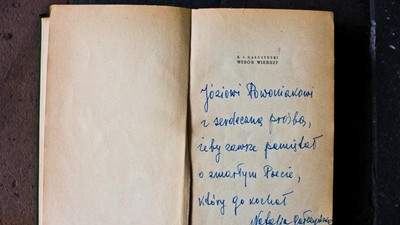 K. I. GAŁCZYŃSKI
WYBÓR WIERSZY
Józiowi Powoniakowi
z serdeczną prośbą,
żeby zawsze pamiętał
o zmarłym Poecie,
który go kochał
Natalia Gałczyńska